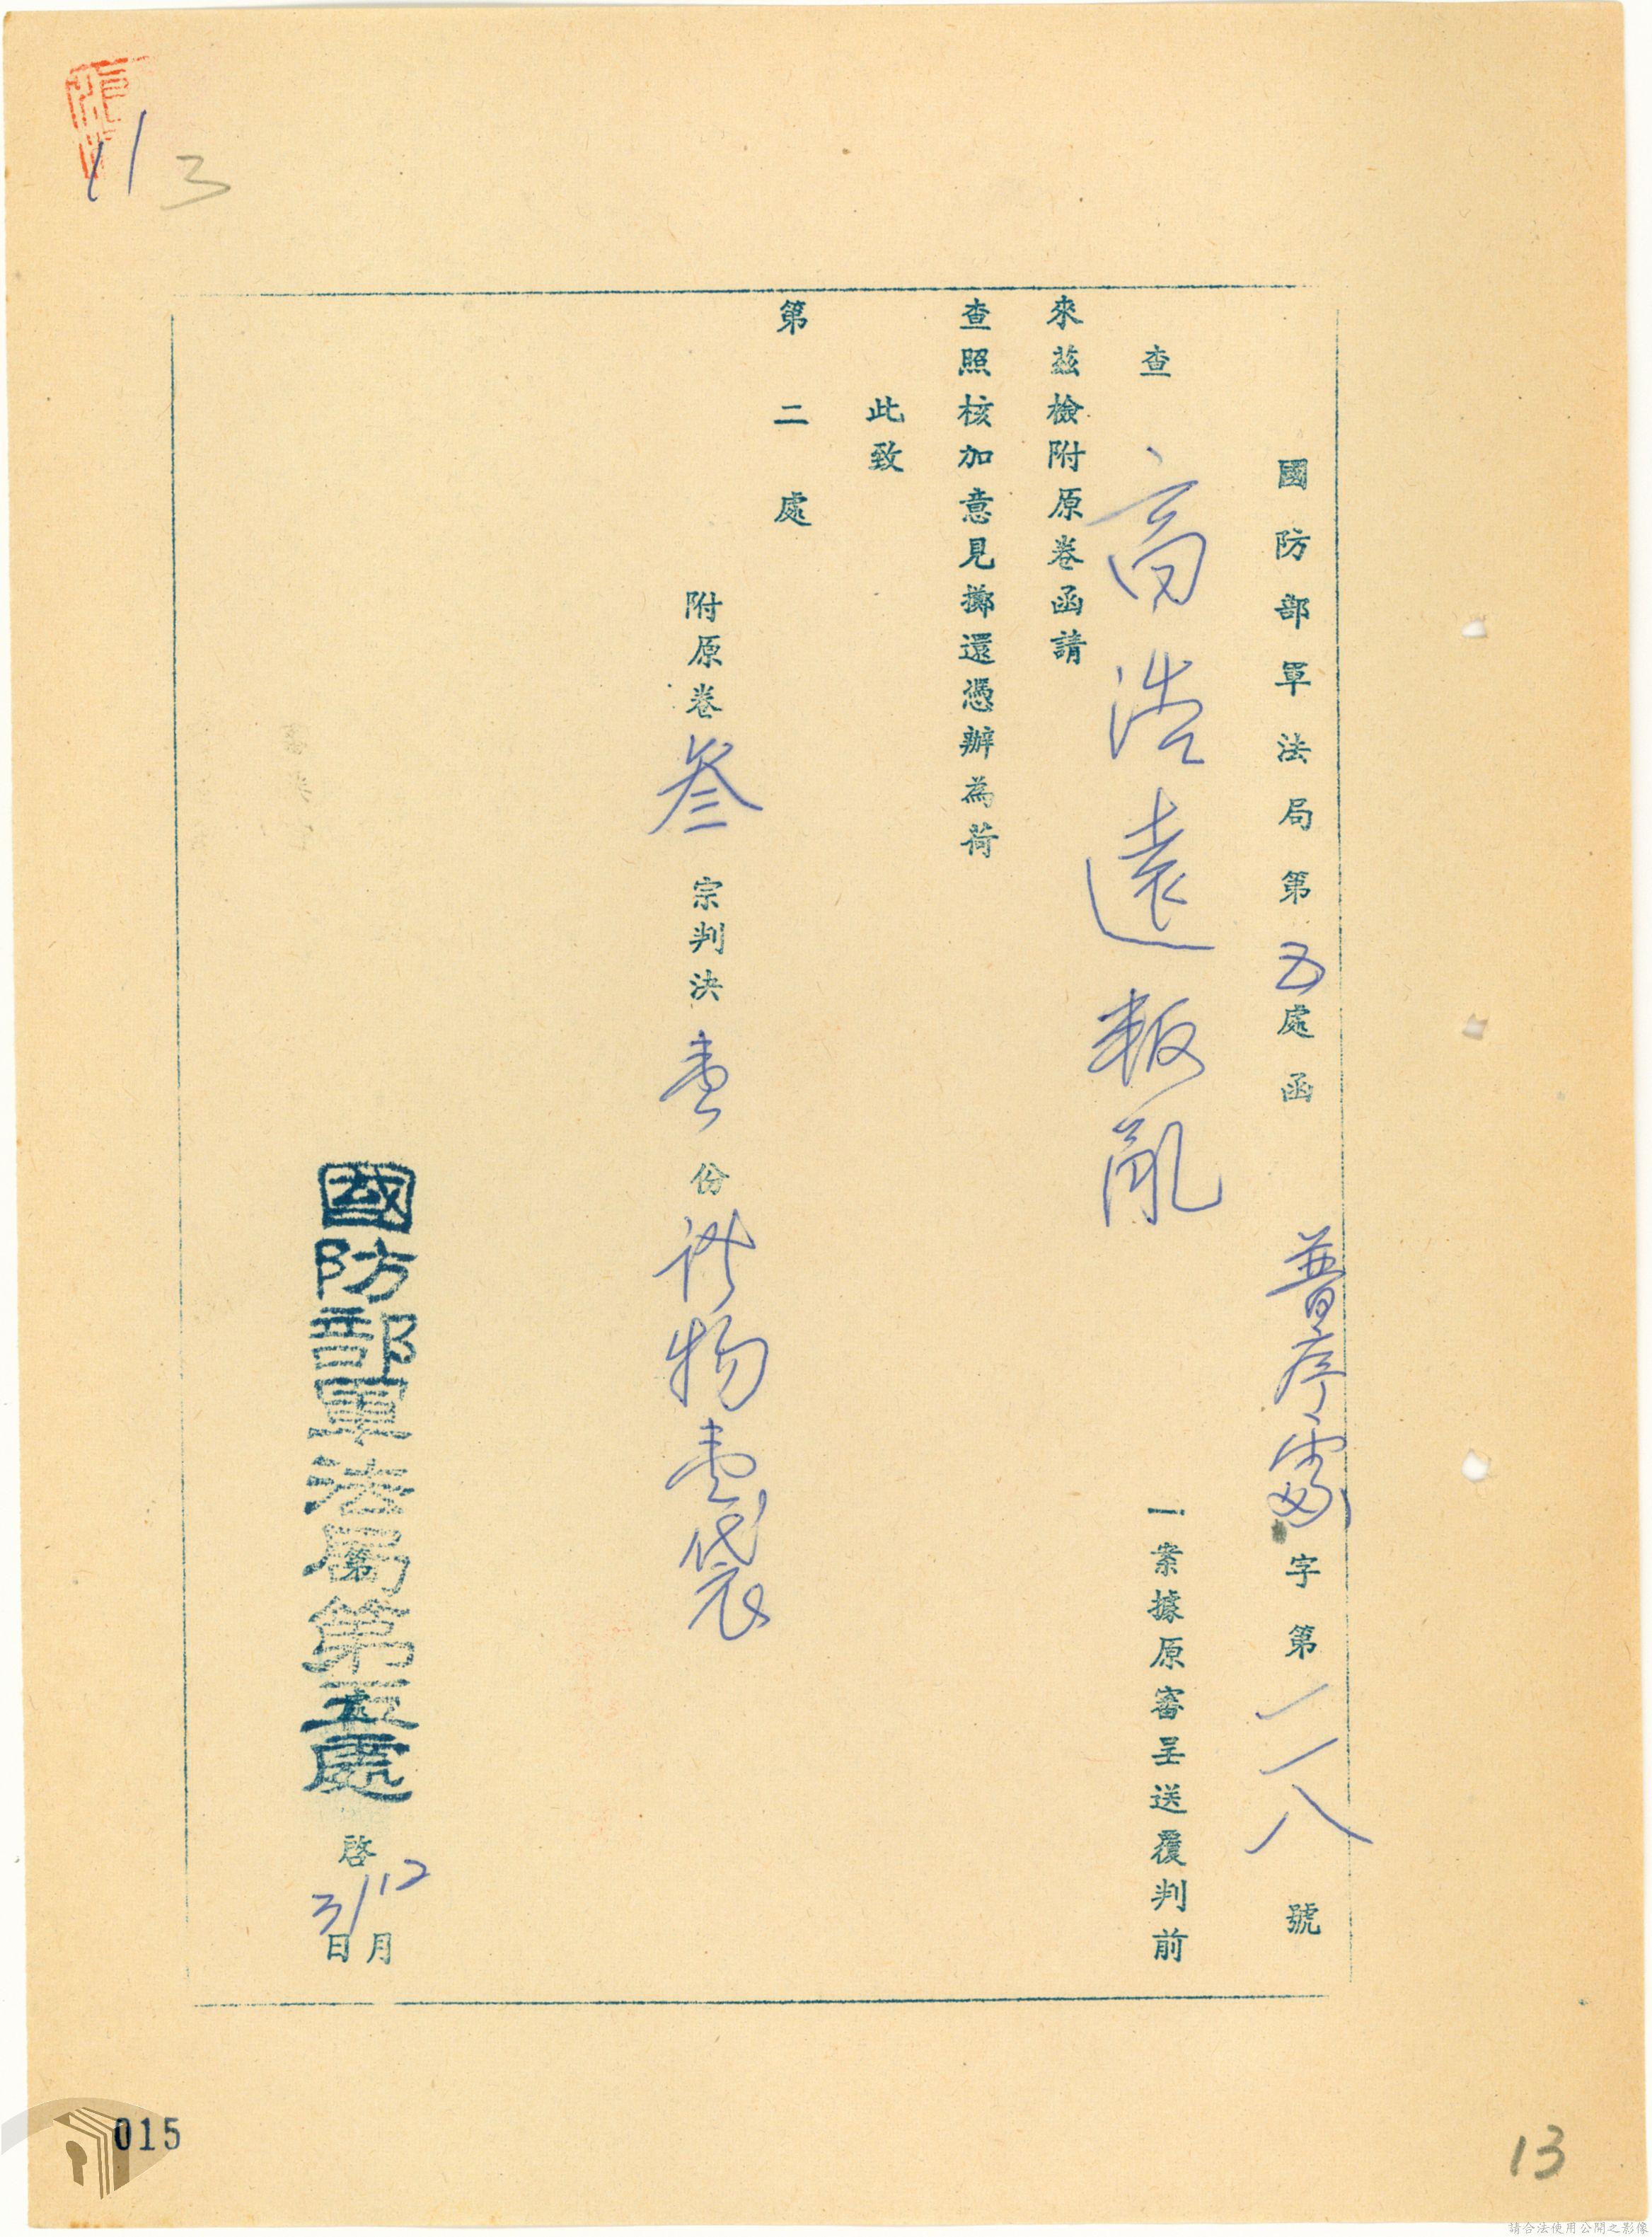 國防部軍法局第五處函 普序字第一一八號
查高浩遠叛亂一案據原審呈送覆判前
來茲檢附原卷函請
查照核加意見擲還憑辦為荷
此致
第二處
附原卷叁宗判決壹份證物壹袋
國防部軍法局第五處啓
12/3
月日
113
015
13
請合法使用公開之影像